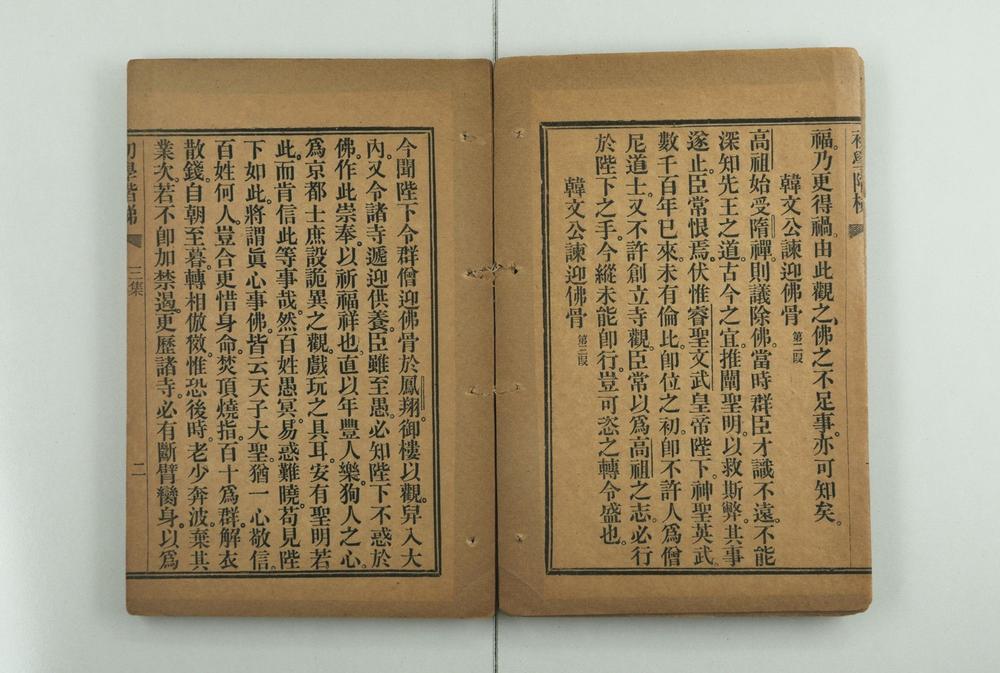 福。乃更得禍。由此觀之。佛之不足事。亦可知矣。
韓文公諫迎佛骨 第二段
高祖始受隋禪。則議除佛。當時群臣才識不遠。不能
深知先王之道。古今之宜。推闡聖明。以救斯弊。其事
遂止。臣常恨焉。伏惟睿聖文武皇帝陛下。神聖英武。
數千百年已來。未有倫比。卽位之初。卽不許人爲僧
尼道士。又不許創立寺觀。臣常以爲高祖之志。必行
於陛下之手。今縱未能卽行。豈可恣之轉令盛也。
韓文公諫迎佛骨 第三段
今聞陛下令群僧迎佛骨於鳳翔。御樓以觀。舁入大
內。又令諸寺遞迎供養。臣雖至愚。必知陛下不惑於
佛。作此崇奉。以祈福祥也。直以年豐人樂。狥人之心。
爲京都士庶設詭異之觀。戲玩之具耳。安有聖明若
此。而肯信此等事哉。然百姓愚冥。易惑難曉。苟見陛
下如此。將謂眞心事佛。皆云天子大聖。猶一心敬信。
百姓何人。豈合更惜身命。焚頂燒指。百十爲群。解衣
散錢。自朝至暮。轉相倣傚。惟恐後時。老少奔波。棄其
業次。若不卽加禁遏。更歷諸寺。必有斷臂臠身。以爲
初學階梯 三集 二